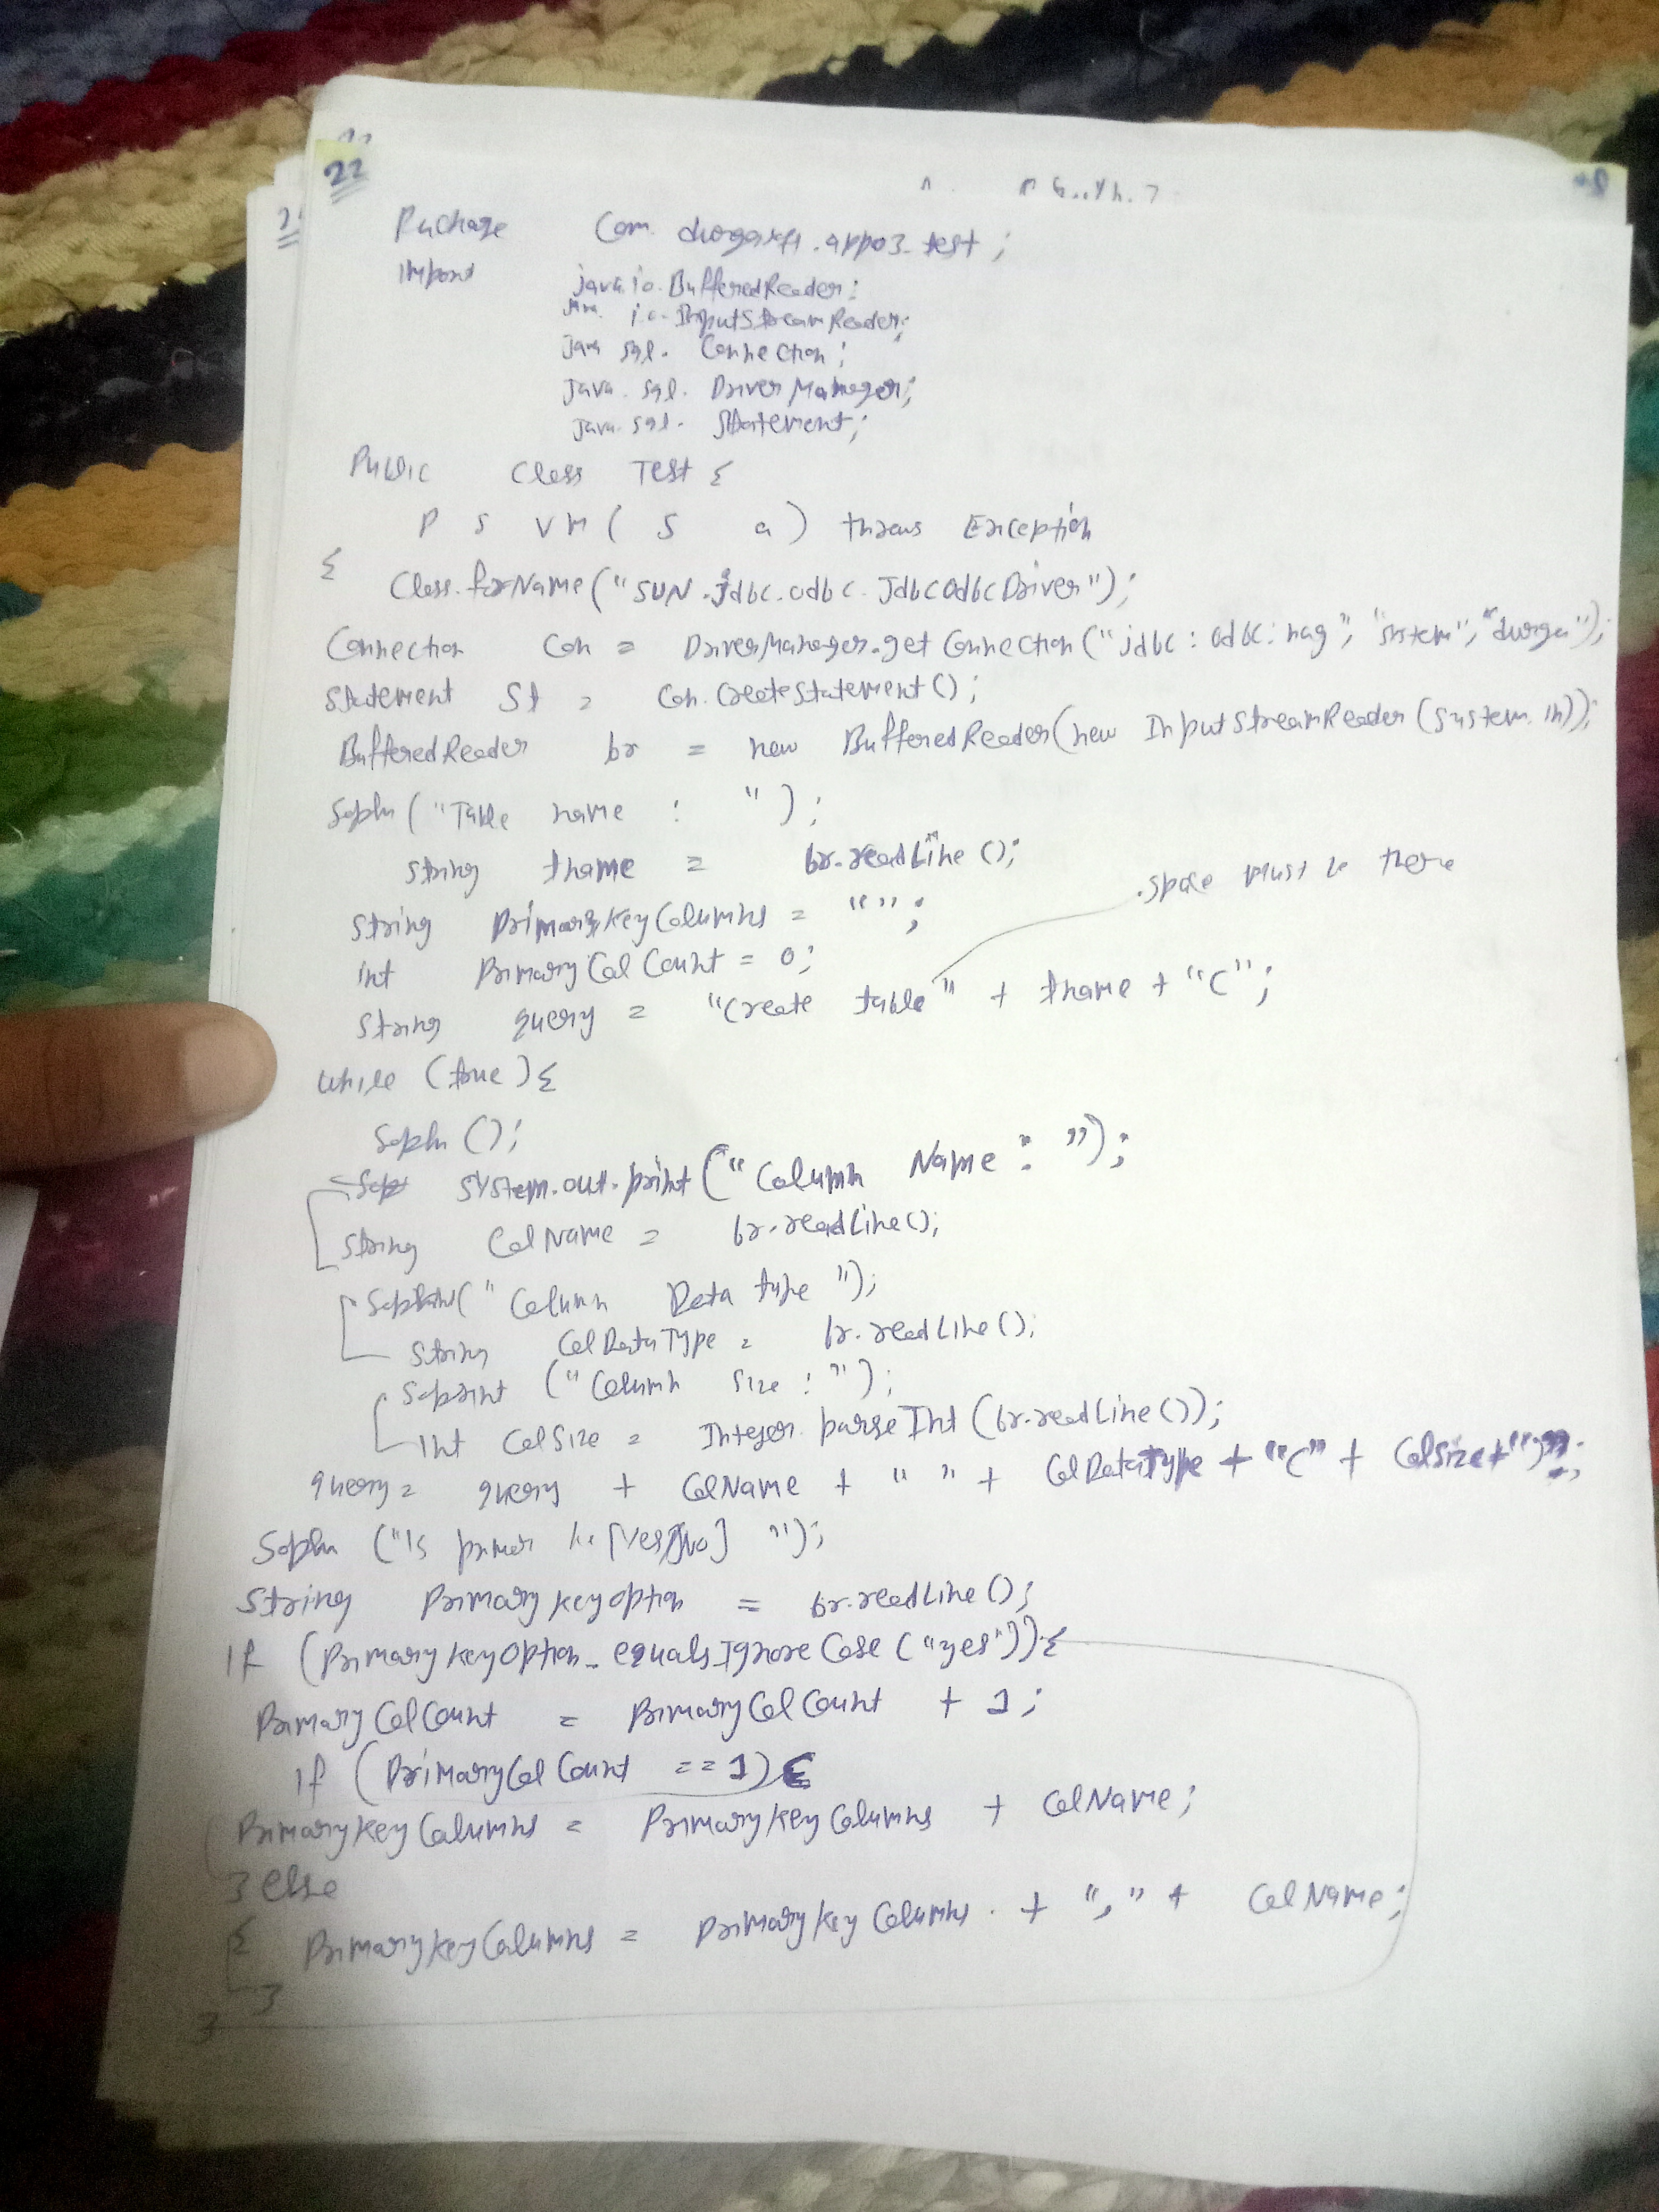 22
Package Com. durgasoft.app03.test ;
Import java.io.BufferedReader;
java. io. InputStreamReader;
java sql. Connection;
java. sql. DriverManager;
java. sql. Statement;
Public Class Test {
P S V M ( S a ) throws Exception
{
Class.forName("SUN.jdbc.odbc.JdbcOdbcDriver");
Connection Con = DriverManager.getConnection("jdbc:odbc:nag", "system", "durga");
Statement St = Con.CreateStatement();
BufferedReader br = new BufferedReader(new InputStreamReader(System.in));
Sopln("Table name : ");
String tname = br.readLine();
.space must be there
String PrimaryKeyColumns = "";
int PrimaryColCount = 0;
String query = "Create table" + tname + "(";
while (true){
Sopln();
System.out.print("Column Name: ");
String ColName = br.readLine();
Sopln("Column Data type");
String ColDataType = br.readLine();
Soprint ("Column Size : ");
Int ColSize = Integer.parseInt(br.readLine());
query = query + ColName + " " + ColDataType + "(" + ColSize+")";
Sopln ("Is [Yes/No] ");
String Primarykeyoption = br.readLine();
If (PrimarykeyOption.equalsIgnoreCase("yes")){
PrimaryColCount = PrimaryColCount + 1;
If (PrimaryColCount == 1){
PrimarykeyColumns = PrimarykeyColumns + ColName;
} else
{ PrimarykeyColumns = PrimarykeyColumns . + "," + ColName;
}
}